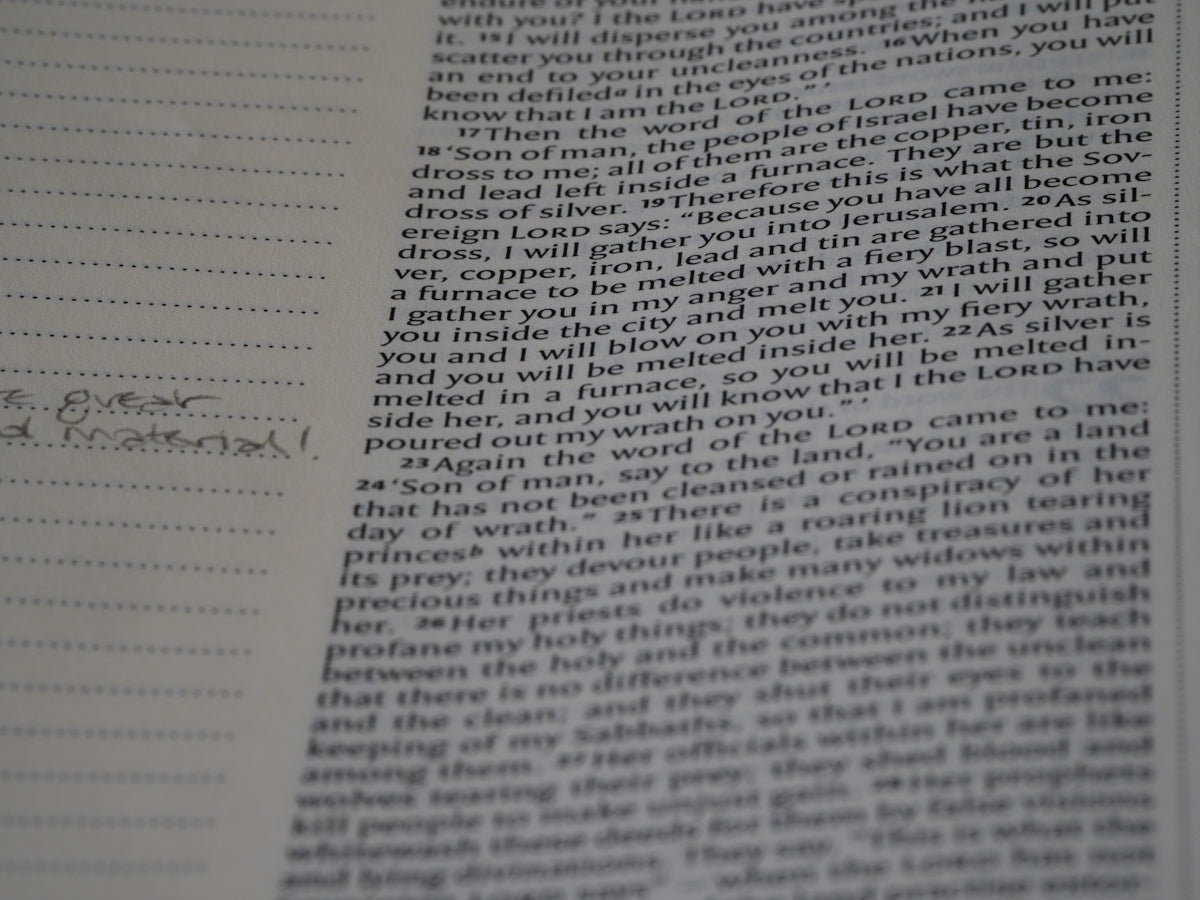 great
material!
with you? I the LORD have
it. 15 I will disperse you among the
scatter you through the countries; and I will put
an end to your uncleanness. 16 When you have
been defiled a in the eyes of the nations, you will
know that I am the LORD.” ’
17 Then the word of the LORD came to me:
18 ‘Son of man, the people of Israel have become
dross to me; all of them are the copper, tin, iron
and lead left inside a furnace. They are but the
dross of silver. 19 Therefore this is what the Sov-
ereign LORD says: “Because you have all become
dross, I will gather you into Jerusalem. 20 As sil-
ver, copper, iron, lead and tin are gathered into
a furnace to be melted with a fiery blast, so will
I gather you in my anger and my wrath and put
you inside the city and melt you. 21 I will gather
you and I will blow on you with my fiery wrath,
and you will be melted inside her. 22 As silver is
melted in a furnace, so you will be melted in-
side her, and you will know that I the LORD have
poured out my wrath on you.” ’
23 Again the word of the LORD came to me:
24 ‘Son of man, say to the land, “You are a land
that has not been cleansed or rained on in the
day of wrath.” 25 There is a conspiracy of her
princes b within her like a roaring lion tearing
its prey; they devour people, take treasures and
precious things and make many widows within
her. 26 Her priests do violence to my law and
profane my holy things; they do not distinguish
between the holy and the common; they teach
that there is no difference between the unclean
and the clean; and they shut their eyes to the
keeping of my Sabbaths, so that I am profaned
among them. 27 Her officials within her are like
wolves tearing their prey; they shed blood and
kill people to make unjust gain. 28 Her prophets
whitewash these deeds for them by false visions
and lying divinations. They say, “This is what the